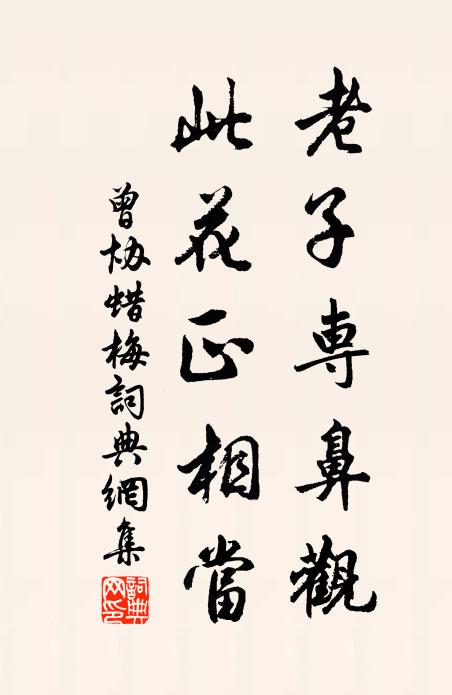 老子専鼻觀
此花正相當
曾协蜡梅詞典網集
詞典网印